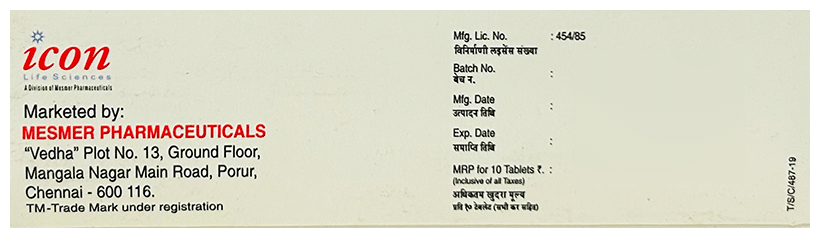 icon
Life Sciences
A Division of Mesmer Pharmaceuticals
Marketed by:
MESMER PHARMACEUTICALS
"Vedha" Plot No. 13, Ground Floor,
Mangala Nagar Main Road, Porur,
Chennai - 600 116.
TM-Trade Mark under registration
Mfg. Lic. No. : 454/85
विनिर्माणी लइसेंस संख्या
Batch No. :
बेच न.
Mfg. Date :
उत्पादन तिथि
Exp. Date :
समाप्ति तिथि
MRP for 10 Tablets ₹. :
(Inclusive of all Taxes)
अधिकतम खुदरा मूल्य
प्रति १० टेबलेट (सभी कर सहित)
T/S/C/487-19